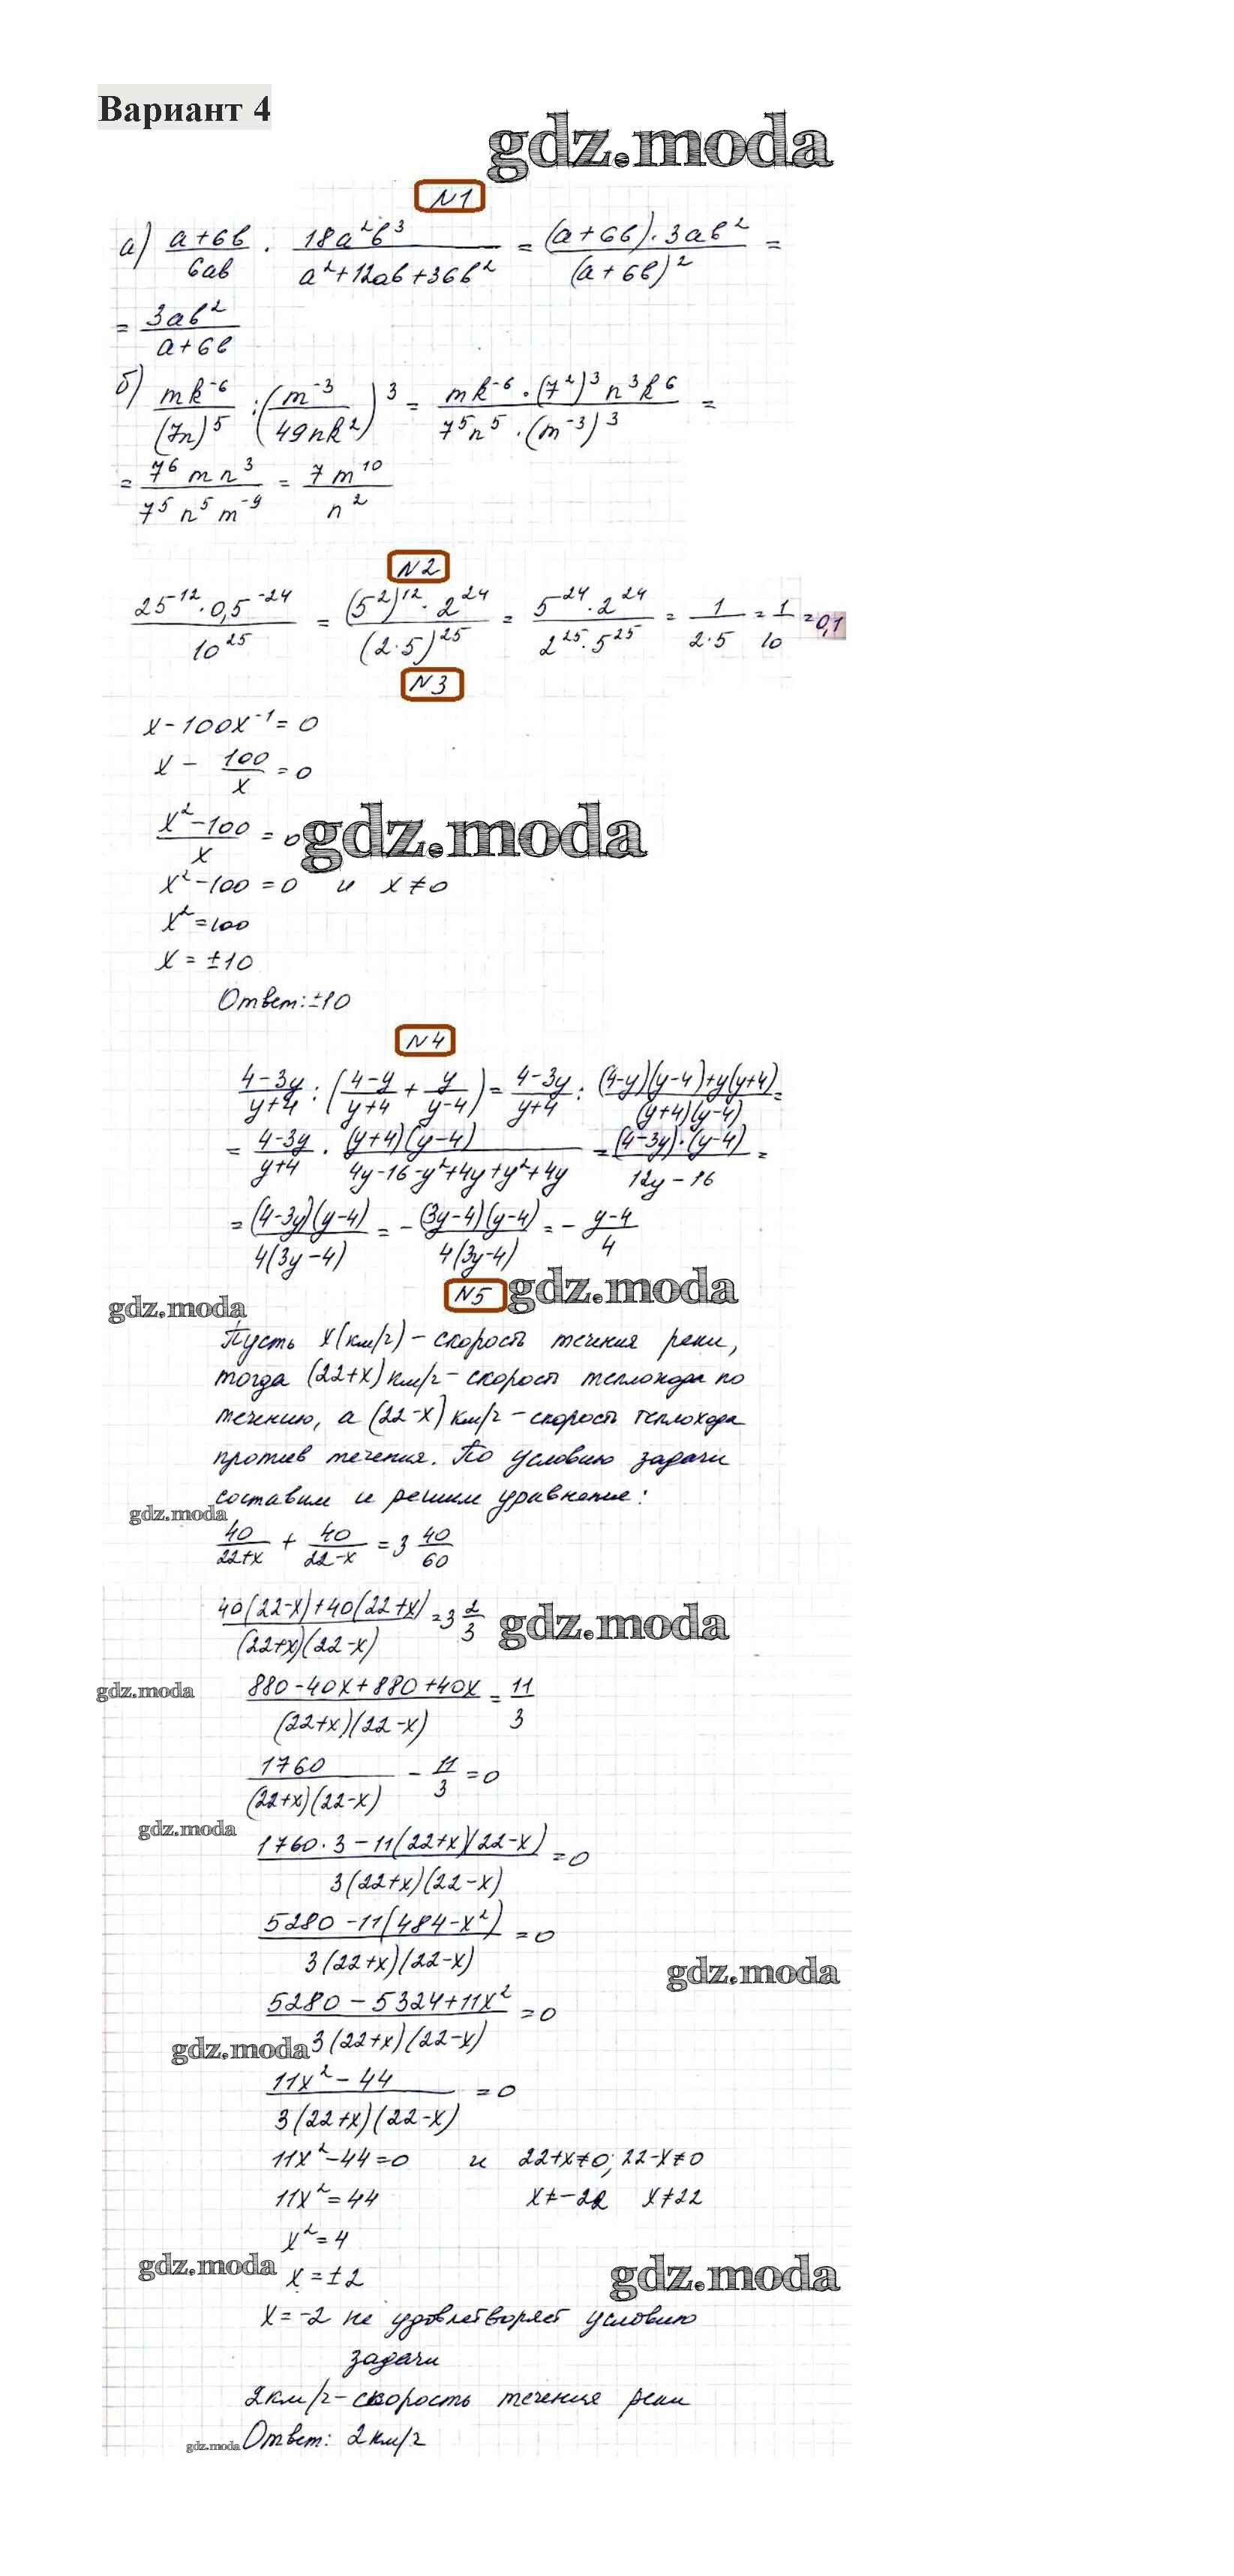 Вариант 4
gdz.moda
N1
а) (a+6b)/(6ab) · (18a²b³)/(a²+12ab+36b²) = ((a+6b)·3ab²)/(a+6b)² =
= (3ab²)/(a+6b)
б) (mk⁻⁶)/(7n)⁵ : (m⁻³/(49nk²))³ = (mk⁻⁶·(7²)³n³k⁶)/(7⁵n⁵·(m⁻³)³) =
= (7⁶mn³)/(7⁵n⁵m⁻⁹) = (7m¹⁰)/n²
N2
(25⁻¹²·0,5⁻²⁴)/10²⁵ = ((5²)¹²·2²⁴)/(2·5)²⁵ = (5⁻²⁴·2²⁴)/(2²⁵·5²⁵) = 1/(2·5) = 1/10 = 0,1
N3
x-100x⁻¹=0
x - 100/x = 0
(x²-100)/x = 0
gdz.moda
x²-100=0 и x≠0
x²=100
x=±10
Ответ: ±10
N4
(4-3y)/(y+4) : ((4-y)/(y+4) + y/(y-4)) = (4-3y)/(y+4) : ((4-y)(y-4)+y(y+4))/((y+4)(y-4)) =
= (4-3y)/(y+4) · ((y+4)(y-4))/(4y-16-y²+4y+y²+4y) = ((4-3y)·(y-4))/(12y-16) =
= ((4-3y)(y-4))/(4(3y-4)) = -((3y-4)(y-4))/(4(3y-4)) = -(y-4)/4
N5 gdz.moda
gdz.moda
Пусть x(км/ч) - скорость течения реки,
тогда (22+x)км/ч - скорость теплохода по
течению, а (22-x)км/ч - скорость теплохода
против течения. По условию задачи
составим и решим уравнение:
gdz.moda
40/(22+x) + 40/(22-x) = 3 40/60
(40(22-x)+40(22+x))/((22+x)(22-x)) = 3 2/3 gdz.moda
gdz.moda (880-40x+880+40x)/((22+x)(22-x)) = 11/3
1760/((22+x)(22-x)) - 11/3 = 0
gdz.moda
(1760·3-11(22+x)(22-x))/(3(22+x)(22-x)) = 0
(5280-11(484-x²))/(3(22+x)(22-x)) = 0
gdz.moda
(5280-5324+11x²)/(3(22+x)(22-x)) = 0
gdz.moda
(11x²-44)/(3(22+x)(22-x)) = 0
11x²-44=0 и 22+x≠0; 22-x≠0
11x²=44 x≠-22 x≠22
x²=4
gdz.moda x=±2 gdz.moda
x=-2 не удовлетворяет условию
задачи
2км/ч - скорость течения реки
gdz.moda Ответ: 2км/ч